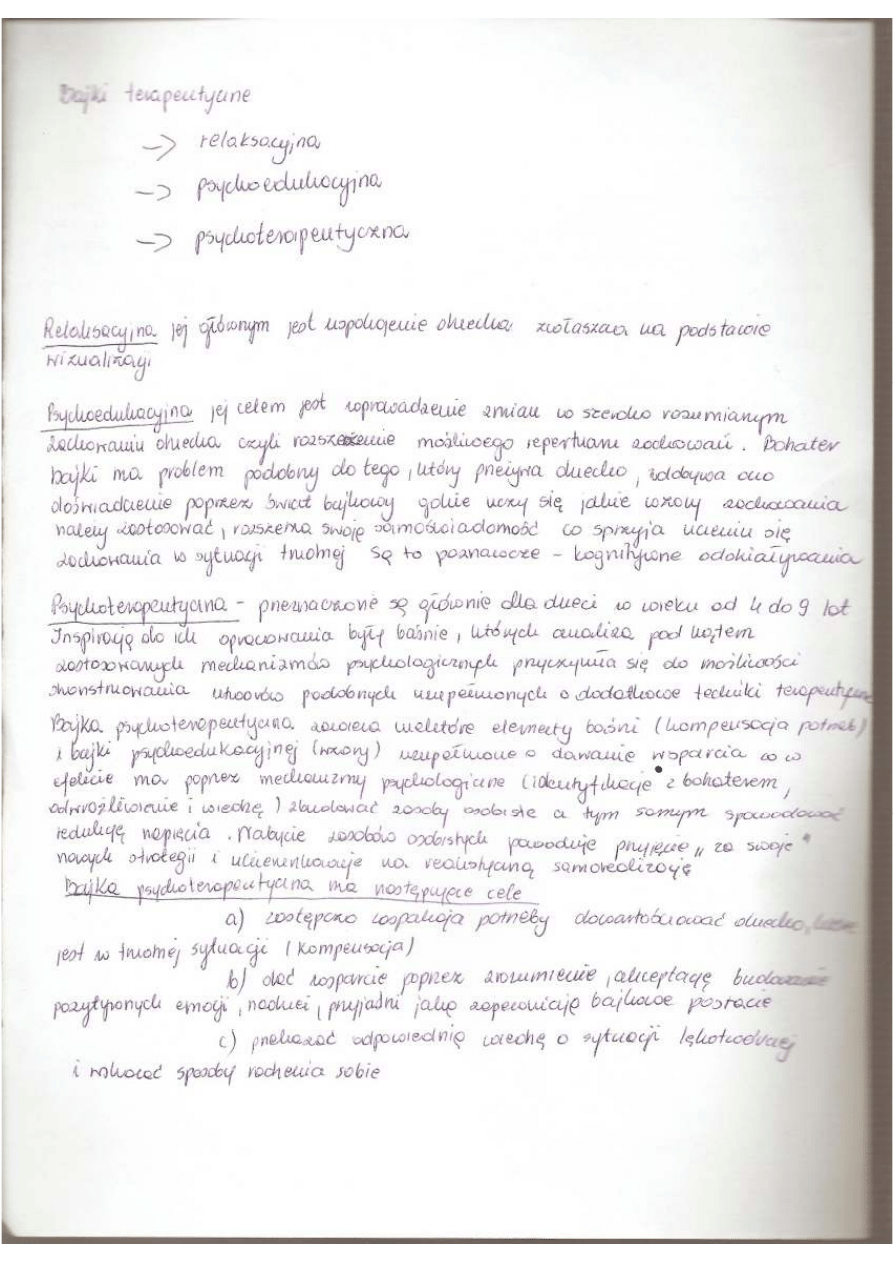 Bajki terapeutyczne
-> relaksacyjna
-> psychoedukacyjna
-> psychoterapeutyczna
Relaksacyjna jej głównym jest uspokojenie dziecka zwłaszcza na podstawie
wizualizacji
Psychoedukacyjna jej celem jest wprowadzenie zmian w szeroko rozumianym
zachowaniu dziecka czyli rozszerzenie możliwego repertuaru zachowań. Bohater
bajki ma problem podobny do tego, który przeżywa dziecko, zdobywa ono
doświadczenie poprzez świat bajkowy gdzie uczy się jakie wzory zachowania
należy zastosować, rozszerza swoją samoświadomość co sprzyja uczeniu się
zachowania w sytuacji trudnej Są to poznawcze - kognitywne oddziaływania
Psychoterapeutyczna - przeznaczone są głównie dla dzieci w wieku od 4 do 9 lat
Inspiracją do ich opracowania były baśnie, których analiza pod kątem
zastosowanych mechanizmów psychologicznych przyczyniła się do możliwości
skonstruowania utworów podobnych uzupełnionych o dodatkowe techniki terapeutyczne
Bajka psychoterapeutyczna zawiera niektóre elementy baśni (kompensacja potrzeb)
i bajki psychoedukacyjnej (wzory) uzupełnione o dawanie wsparcia co w
efekcie ma poprzez mechanizmy psychologiczne (identyfikację z bohaterem,
odwrażliwienie i wiedzę) zbudować zasoby osobiste a tym samym spowodować
redukcję napięcia. Nabycie zasobów osobistych powoduje przyjęcie „za swoje"
nowych strategii i ukierunkowuje na realistyczną samorealizację
Bajka psychoterapeutyczna ma następujące cele
a) zastępczo zaspokaja potrzeby dowartościować dziecko, które
jest w trudnej sytuacji (kompensacja)
b) dać wsparcie poprzez zrozumienie, akceptację budowanie
pozytywnych emocji, nadziei, przyjaźni jaką zapewniają bajkowe postacie
c) przekazać odpowiednią wiedzę o sytuacji lękotwórczej
i wskazać sposoby radzenia sobie